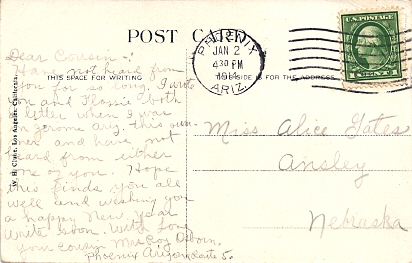 POST CARD
PHOENIX
JAN 2
4 30 PM
1914
ARIZ.
U.S. POSTAGE
THIS SPACE FOR WRITING
THIS SIDE IS FOR THE ADDRESS
Dear Cousin -:
Have not heard from
you for so long. I wrote
you and Flossie both
a letter when I was
in Jerome Ariz. this
and have not
heard from either
one of you. Hope
this finds you all
well and wishing you
a happy New Year
Write soon. With love
your cousin Mrs Roy Osborn.
Phoenix Arizona Route 5.
Miss Alice Gates
Ansley
Nebraska
Los Angeles, California.